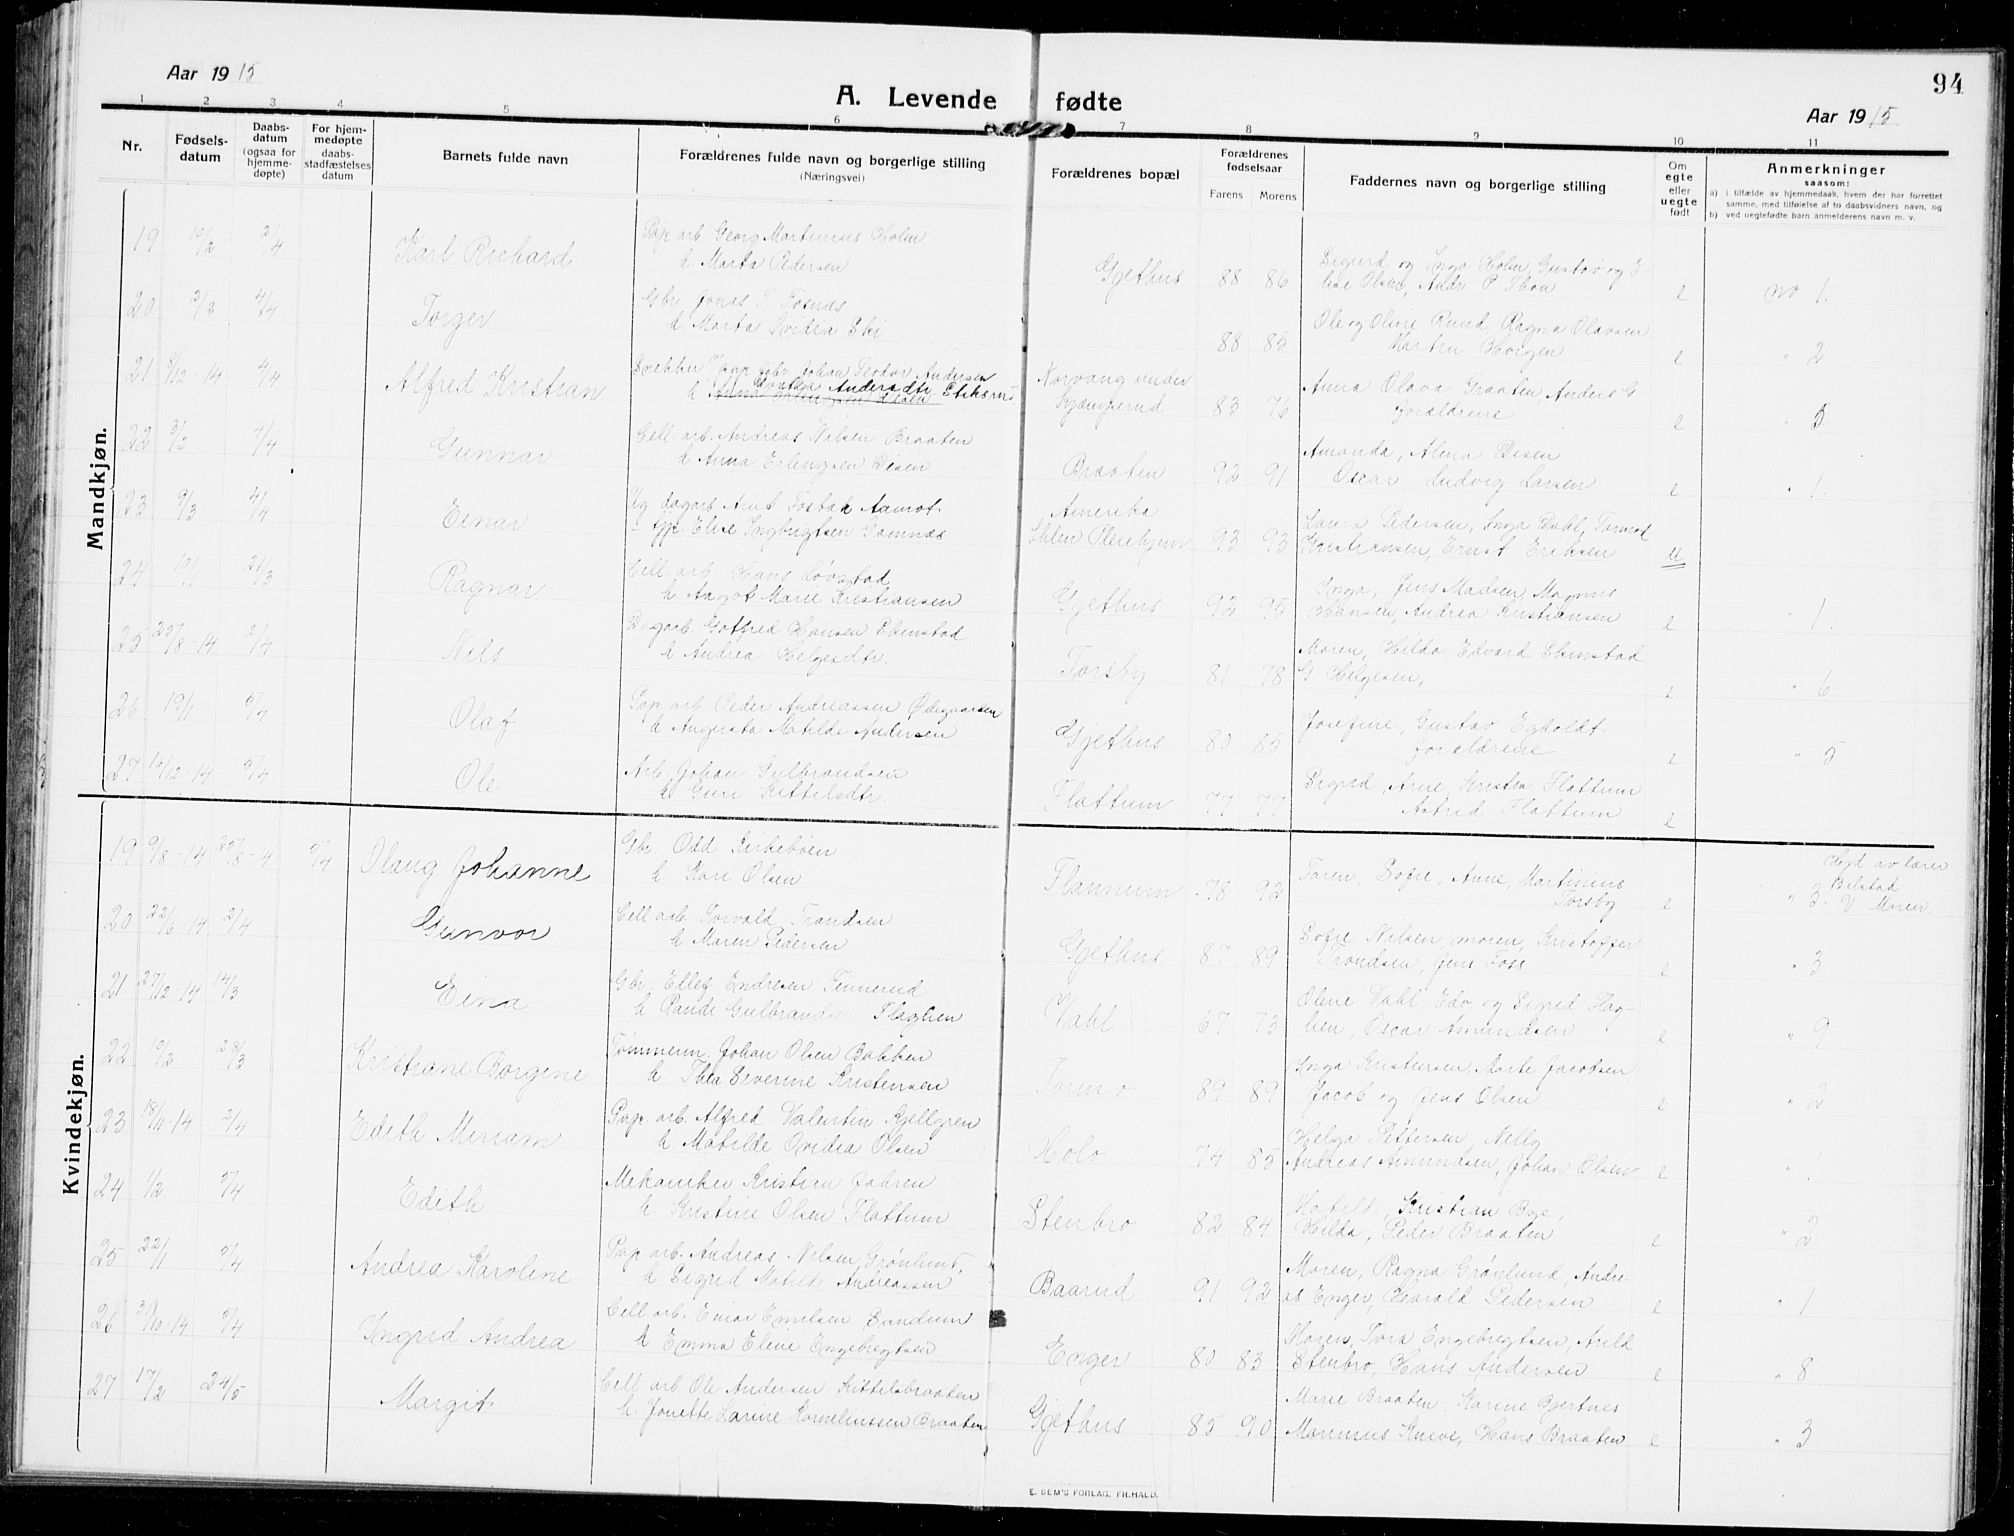 Aar 1915
A. Levende fødte
94
Aar 1915
1 2 3 4 5 6 7 8 9 10 11
Nr.
Fødsels-
datum
Daabs-
datum
(ogsaa for
hjemme-
døpte)
For hjem-
medøpte
daabs-
stadfæstelses
datum
Barnets fulde navn
Forældrenes fulde navn og borgerlige stilling
(Næringsvei)
Forældrenes bopæl
Forældrenes
fødselsaar
Farens Morens
Faddernes navn og borgerlige stilling
Om
egte
eller
uegte
født
Anmerkninger
saasom:
a) i tilfælde av hjemmedaab, hvem der har forrettet
samme, med tilføielse af to daabsvidners navn, og
b) ved uegtefødte barn anmelderens navn m. v.
Mandkjøn.
19 10/2 2/4 Karl Richard
Pap arb Georg Martinius Holm
h Marta Pedersen
Gjethus 88 86
Sigurd og Inga Holm, Gustav og E-
line Olsen, Andr P Thon
e no 1.
20 3/2 4/4 Torger
Gbr Jonas T. Fosnæs
h Marta Ovidia Ski
88 85
Ole og Olive Rund, Ragna Olavsen
Martin Horgen
e " 2
21 8/12-14 4/4 Alfred Kristian
Snekker Johan Teodor Andersen
h Andersdtr Stiksrud
Norvang under
83 76
Anna Olava Graaten, Anders G
Forældrene
e " 5
22 3/2 4/4 Gunnar
Cell. arb. Andreas Nilsen Braaten
h Anna Erlingsen Disen
Braaten 92 91
Amanda, Alma Disen
Oscar, Ludvig Larsen
e " 1.
23 9/3 4/4 Einar
Ug dagarb. Arnt Fosbak Aamot
- tjp. Elise Ingbrigtsen Gomnæs
Amerika
93 93
Laura Pedersen, Inga Dahl, Tormod
Kristiansen, Ernst Eriksen
u
24 10/1 21/3 Ragnar
Cell. arb. Hans Løvstad
h Aagot Marie Kristiansen
Gjethus 92 95
Inga, Jens Madsen, Magnus
Hansen, Andrea Kristiansen
e " 1.
25 25/8-14 2/4 Nils
Dagarb. Gotfred Hansen Skinstad
h Andrea Helgesdtr.
Torsby 81 78
Moren, Hilda, Edvard Skinstad
G Helgesen,
e " 6.
26 19/1 5/4 Olaf
Pap. arb Peder Andreassen Ødegaarden
h Augusta Matilde Andersen
Gjethus 80 85
Josefine, Gustav Egholdt
forældrene
e " 5
27 10/12-14 5/4 Ole
Arb. Johan Gulbrandsen
h Guri Kittelsdtr.
Flattum 77 77
Sigrid, Arne, Kristen Flattum
Astrid Flattum
e
Kvindekjøn.
19 9/8-14 25/8-14 5/4 Olaug Johanne
Gbr Odd Kirkebøen
h Kari Olsen
Flannum 78 92
Faren, Sofie, Anne, Martinius
Torsby
e " 3.
Hjd av lærer
Bilstad
V: Moren
20 22/6-14 2/4 Gunvor
Cell arb. Torvald Trondsen
h Maren Pedersen
Gjethus 87 89
Sofie Nilsen, moren, Kristoffer
Trondsen, Jens Foss
e " 3
21 27/12-14 14/3 Eina
Gbr. Ellef Endresen Finnerud
h Randi Gulbrandsen Flaglien
Vahl 67 73
Oline Vahl, Edv. og Sigrid Flag-
lien, Oscar Amundsen
e " 9
22 19/2 28/3 Kristiane Borgine
Tømmerm. Johan Olsen Bakken
h Thea Severine Kristensen
89 89
Inga Kristensen, Marte Jacobsen
Jacob og Jens Olsen
e " 2
23 18/11-14 2/4 Edith Miriam
Pap. arb. Alfred Valentin Kjellgren
h Matilde Ovidia Olsen
Holo 74 85
Helga Pettersen, Nelly
Andreas Amundsen, Johan Olsen
e " 1.
24 1/2 5/4 Edith
Mekaniker Kristian Jahren
h Kristine Olsen Flattum
Stenbro 82 84
Kristian Bye,
Hilda, Peder Braaten
e " 2
25 22/11 5/4 Andrea Karoline
Pap. arb. Andreas Nilsen Grønlund,
h Sigrid Matilde Andreassen
Baarud 91 92
Moren, Ragna Grønlund, Andre-
as Enger, Harald Pedersen
e " 1
26 31/10-14 5/4 Ingrid Andrea
Cell. arb. Einar Emilsen Sandum
h Emma Eline Engebregtsen
Enger 80 83
Moren, Tora Engebregtsen, Arild
Stenbro, Hans Andersen
e " 8
27 17/2 24/5 Margit
Cell arb Ole Andersen Kittelsbraaten
h. Jonette Larine Kornelinssen Braaten
Gjethus 85 90
Marie Braaten, Karine Bjertnes
Marinius Knive, Hans Braaten
e " 3
E. SEM'S FORLAG, FR.HALD.